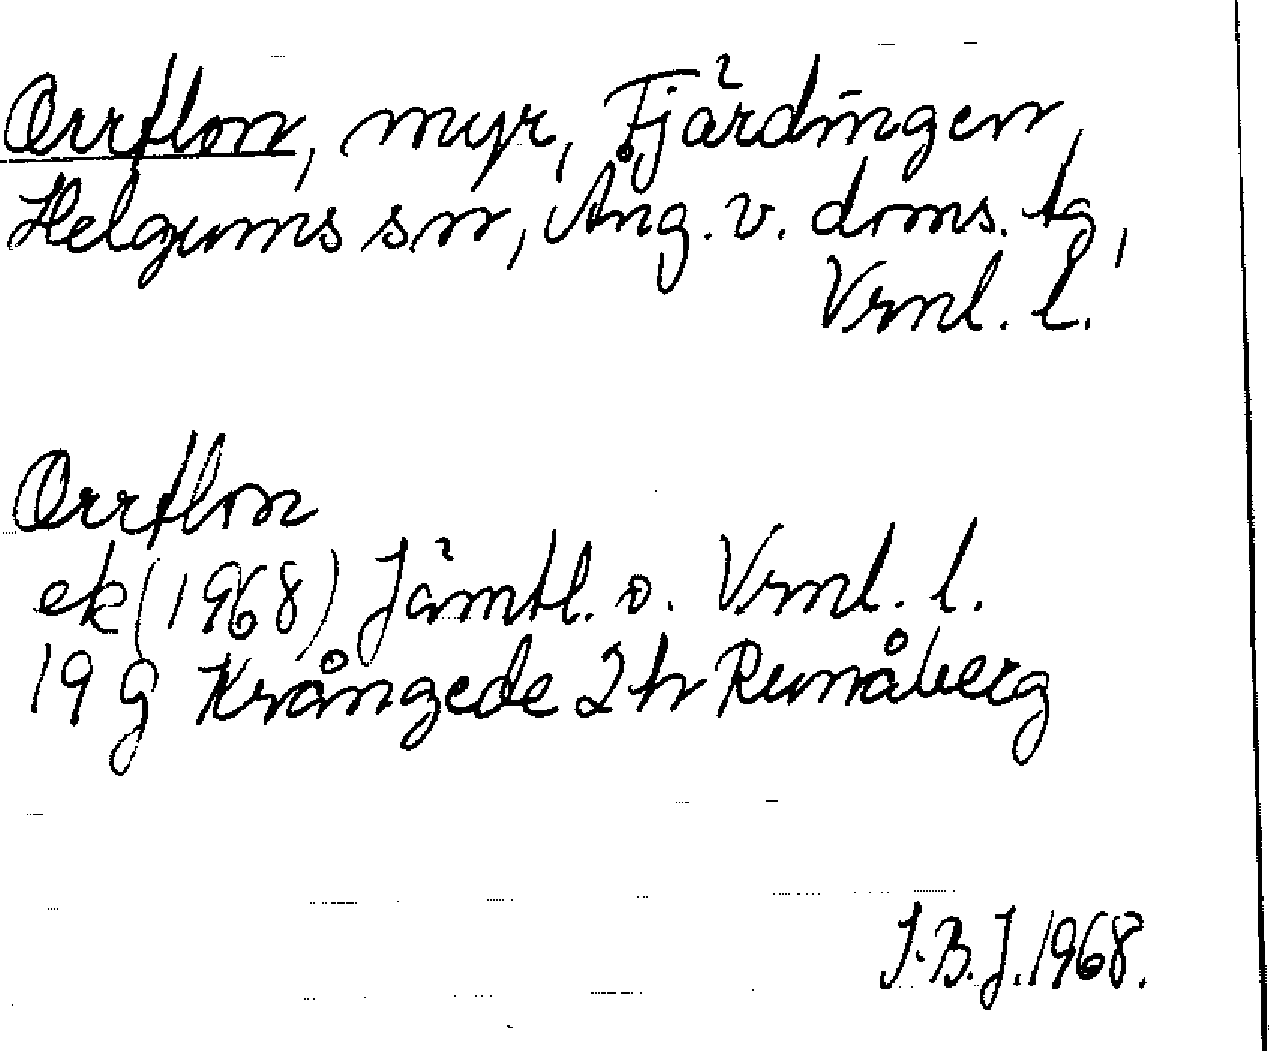 Orrflon, myr, Fjärdingen,
Helgums sn, Ång. v. doms. tg,
Vrnl. l.
Orrflon
ek (1968) Jämtl. o. Vrnl. l.
19 g Krångede 2 h Runåberg
J.B.J. 1968.